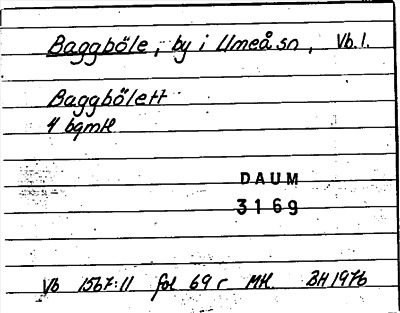 Baggböle, by i Umeå sn, Vb. l.
Baggbölett
4 bgmk
DAUM
3169
Vb 1567:11 fol 69 r MK. BH 1976